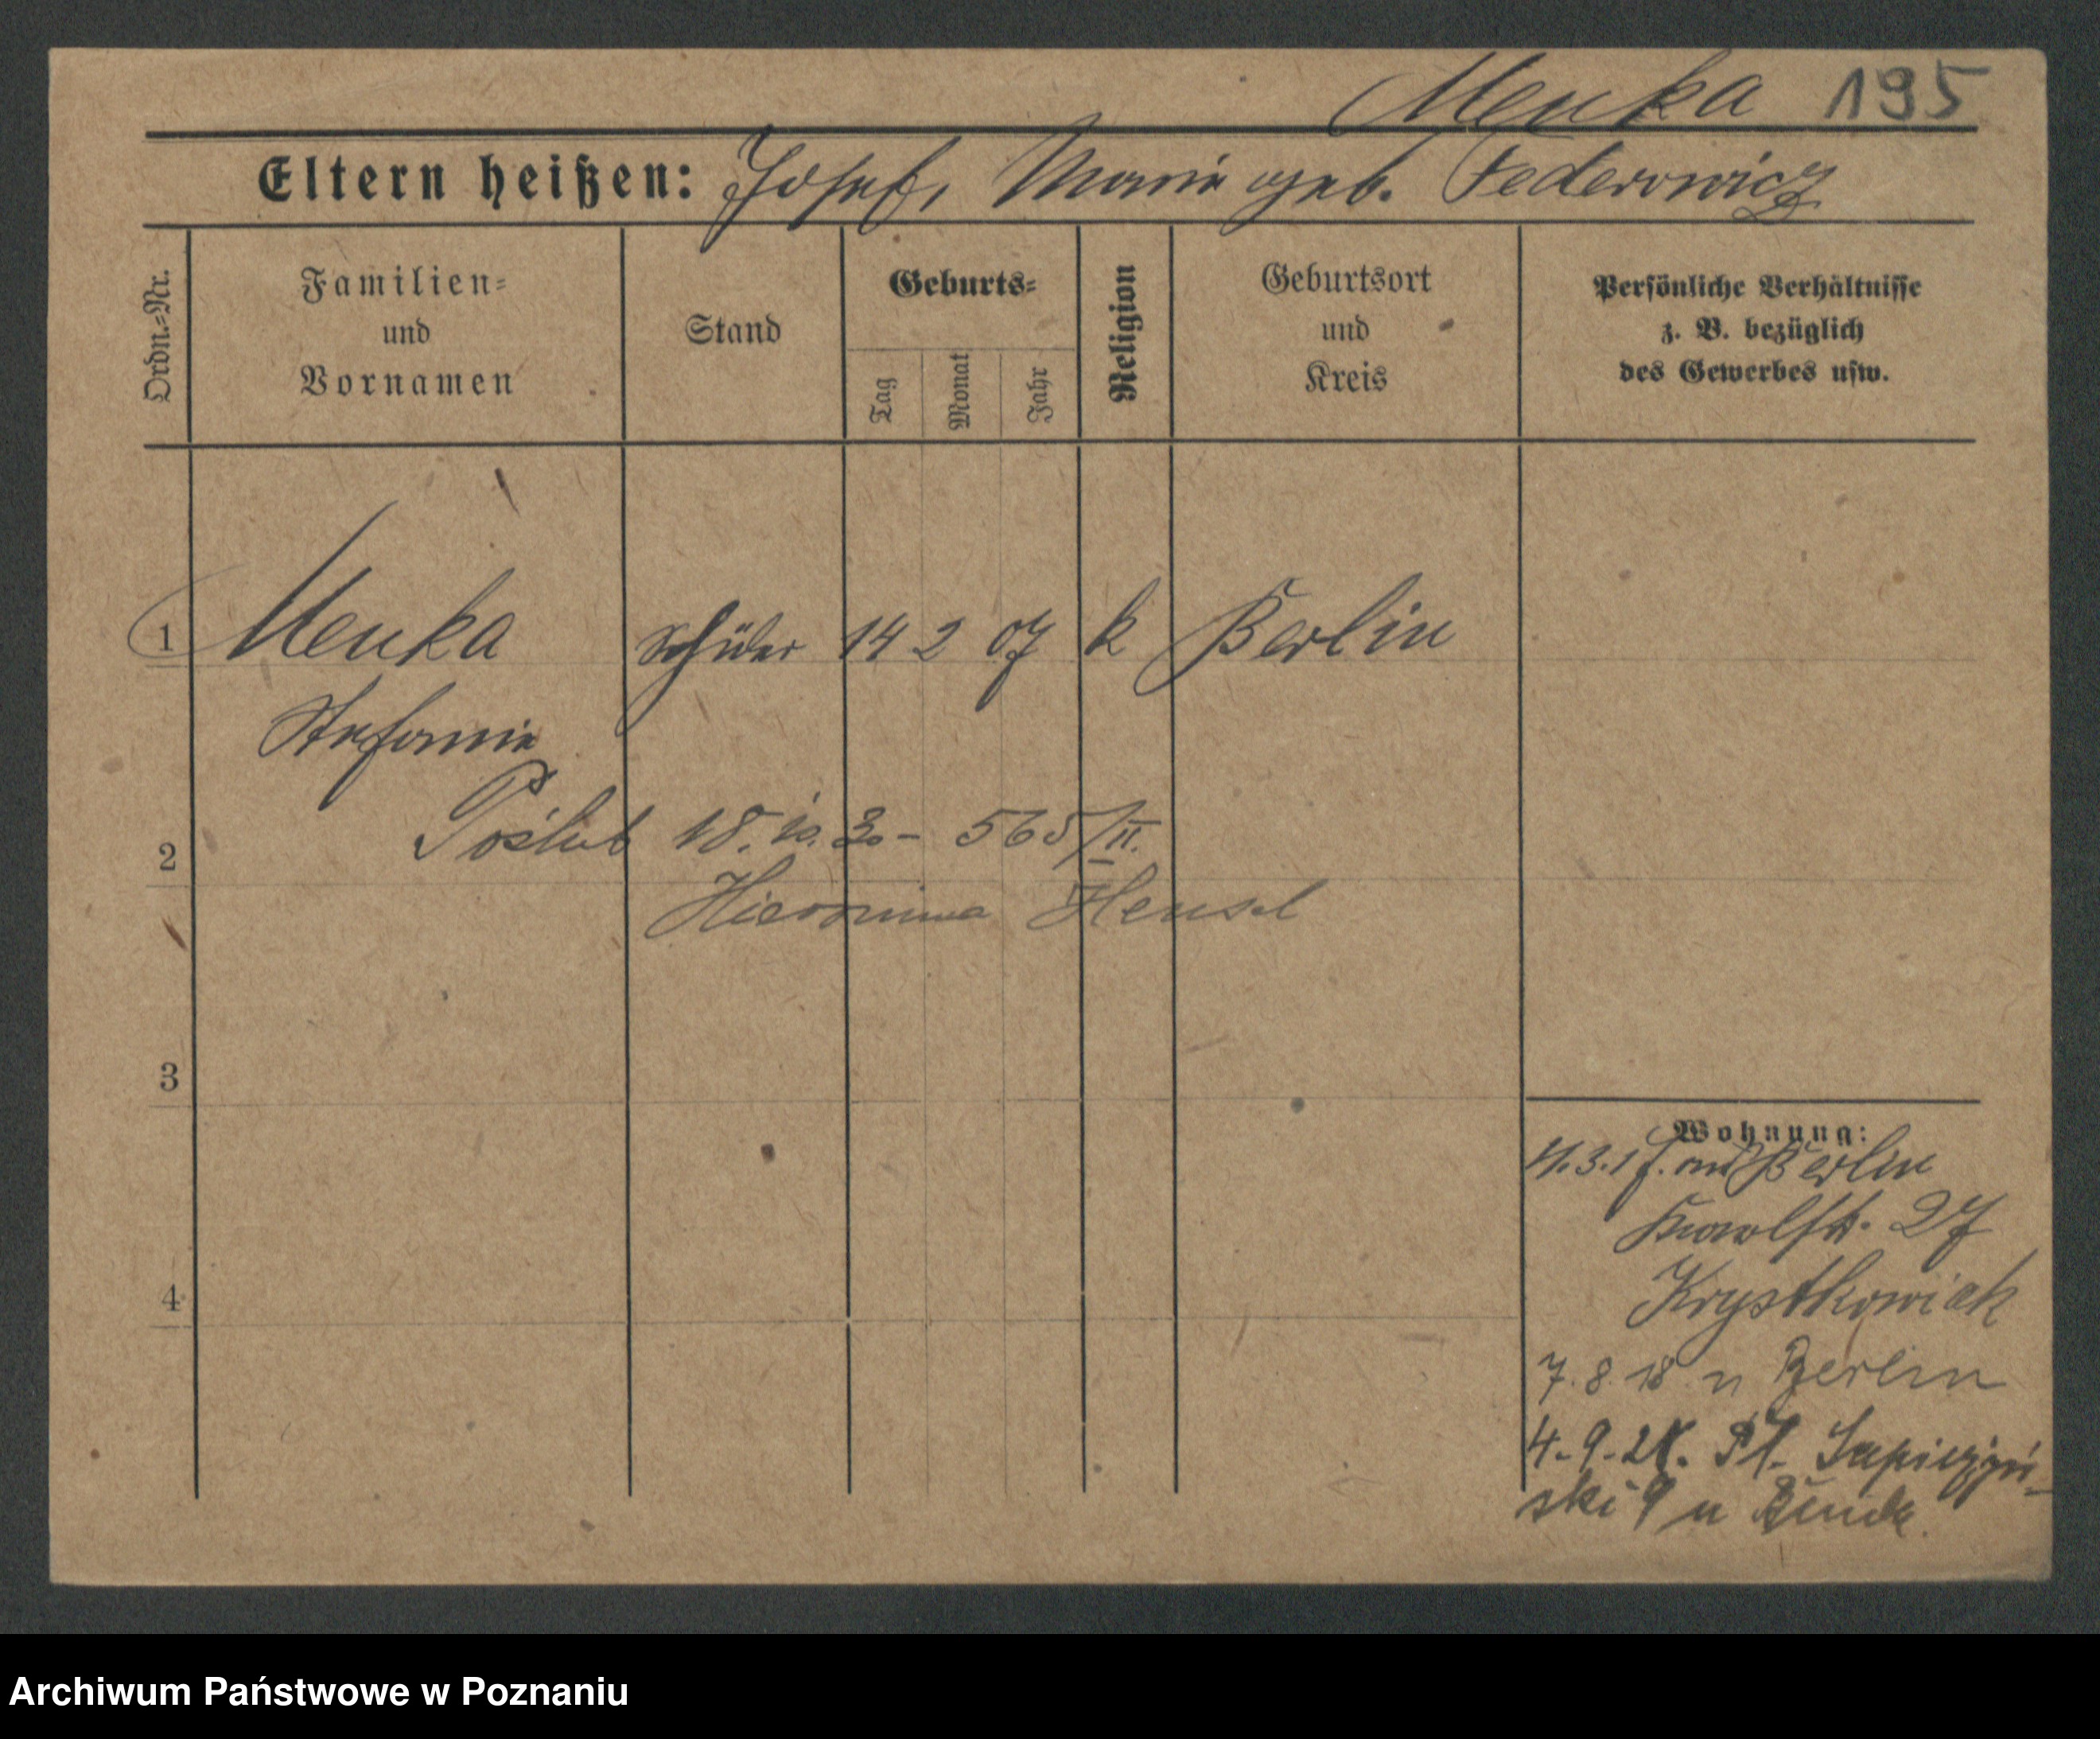 Menka 195
Eltern heißen: Josef, Maria geb. Federowicz
Ordn.-Nr.
Familien-
und
Vornamen
Stand
Geburts-
Tag
Monat
Jahr
Religion
Geburtsort
und
Kreis
Persönliche Verhältnisse
z. B. bezüglich
des Gewerbes usw.
1 Menka Schüler 14 2 07 k Berlin
Stefania
Poślub 18. 10. 30 - 565/II.
2
Hieronima Hensel
3
Wohnung:
Berlin
27
Krystkowiak
4
7. 8. 18 n Berlin
4. 9. 28. Pl. Sapieżyń-
ski 9 u
Archiwum Państwowe w Poznaniu